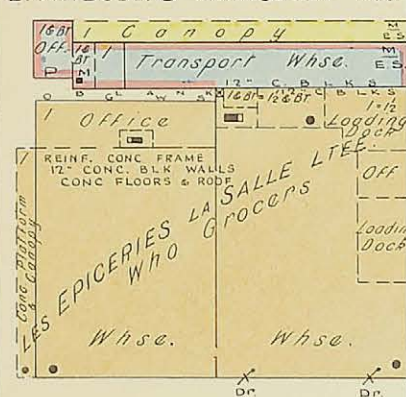 16 BT
Off.
1 Canopy
M
E S
16
BT
1
Transport Whse.
M
E.S.
P M
12" C. B L K S
B G L A W N S K
16 BT
12 & 16 BT
12" C B L K S
1 Office
1-12
Loading
Dock
1
REINF. CONC FRAME
12" CONC. BLK WALLS
CONC FLOORS & ROOF
Off
LES EPICERIES LA SALLE LTEE.
Who Grocers
Loading
Dock
Conc Platform
& Canopy
Whse.
Whse.
Dr.
Dr.